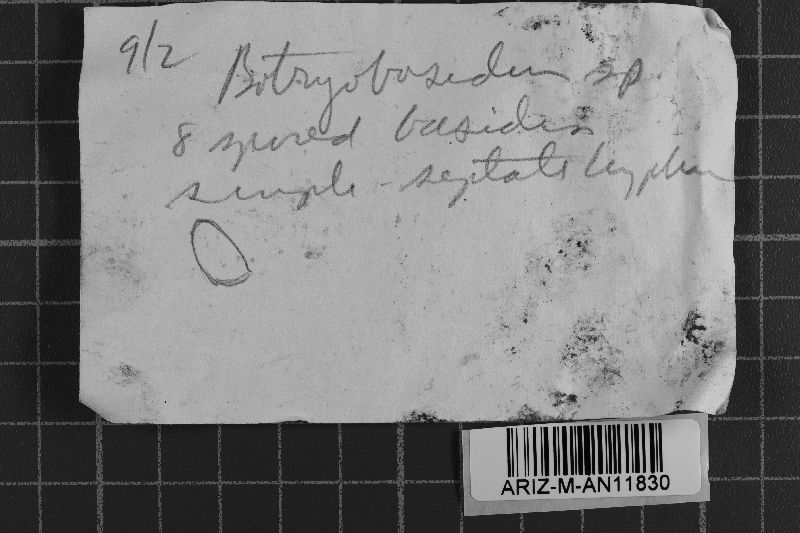 9/2
Botryobasidium sp
8 spored basidia
simple-septate hyphae
ARIZ-M-AN11830